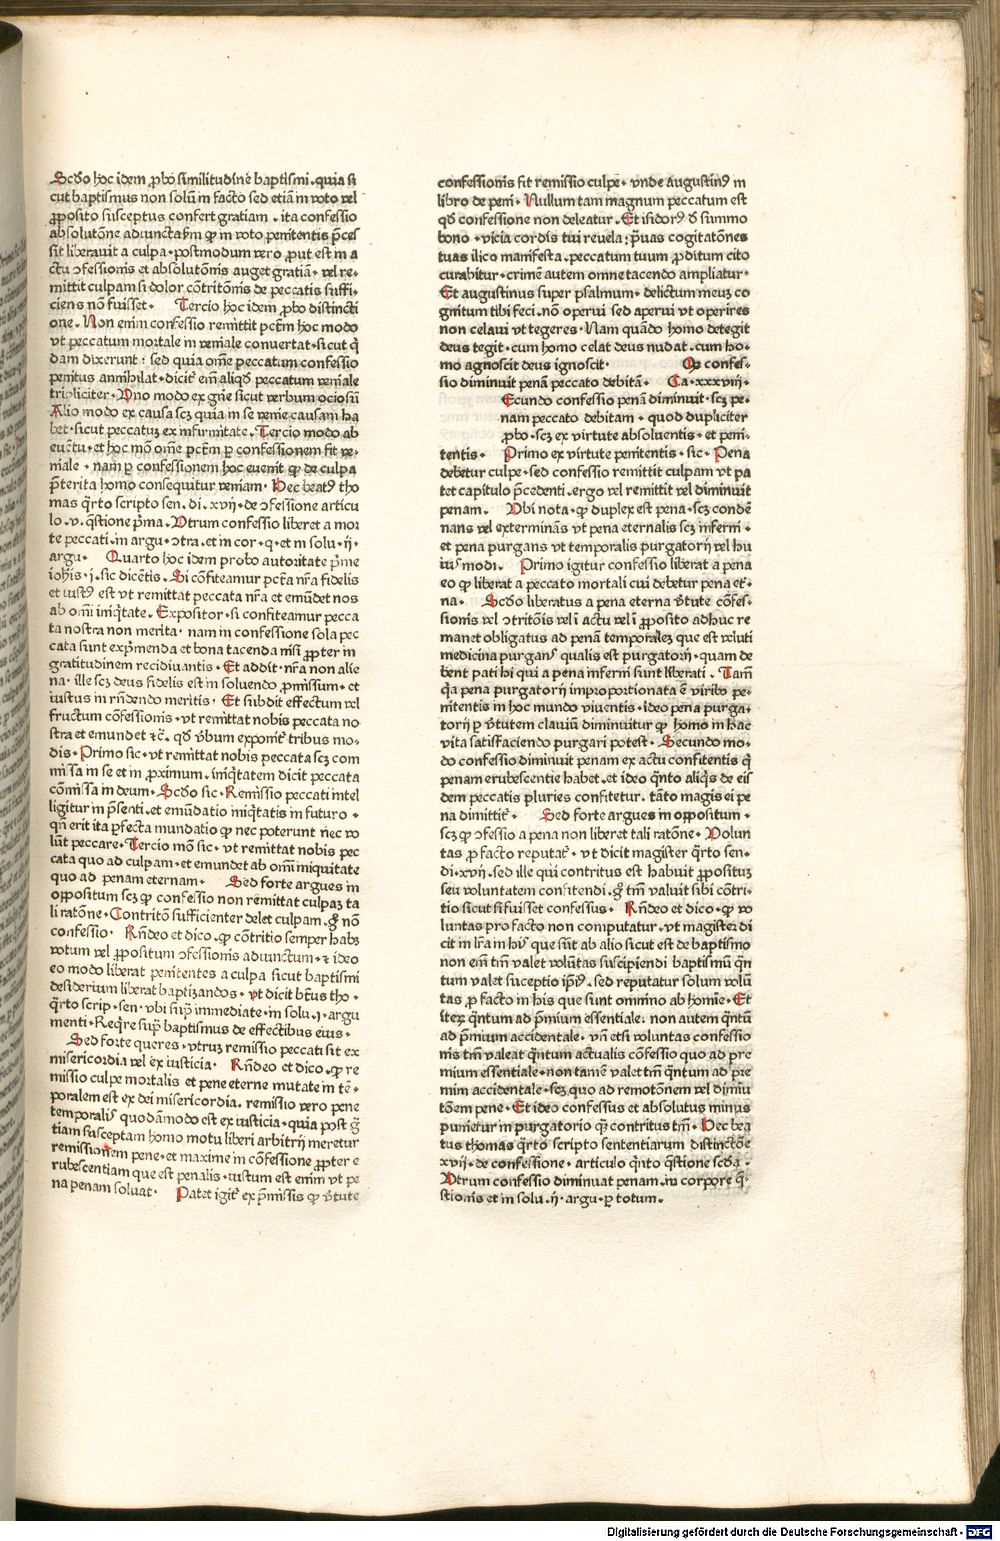 Scđo hoc idem ꝓbo similitudinē baptismi.quia si
cut baptismus non solū in facto sed etiā in voto vel
ꝓposito susceptus confert gratiam. ita confessio
absolutōne adiuncta ꝙ in voto penitentis p̄ces
sit liberauit a culpa.postmodum vero ꝓut est in a
ctu ɔfessionis et absolutōnis auget gratiā. vel re-
mittit culpam si dolor cōtritōnis de peccatis suffi-
ciens nō fuisset. Tercio hoc idem ꝓbo distincti
one. Non enim confessio remittit pctm̄ hoc modo
vt peccatum mortale in veniale conuertat.sicut q̄
dam dixerunt: sed quia om̄e peccatum confessio
penitus annihilat.dicit̄ em̄ aliqđ peccatum veniale
tripliciter. Uno modo ex gn̄e sicut verbum ociosū
Alio modo ex causa scꝫ quia in se venie causam ha
bet.sicut peccatuꝫ ex infirmitate. Tercio modo ab
euētu.et hoc mō om̄e pctm̄ ꝑ confessionem fit ve-
niale. nam ꝑ confessionem hoc euenit ꝙ de culpa
p̄terita homo consequitur veniam. Hec beatꝰ tho
mas q̄rto scripto sen. di. xvij. de ɔfessione articu
lo.v. q̄stione p̄ma. Utrum confessio liberet a mor
te peccati.in argu.ɔtra.et in cor.q.et in solu.ij.
argu. Quarto hoc idem probo autoritate p̄me
ioh̄is.j.sic dicētis. Si cōfiteamur pctā nr̄a fidelis
et iustꝰ est vt remittat peccata nr̄a et emūdet nos
ab om̄i iniq̄tate. Expositor.si confiteamur pecca
ta nostra non merita. nam in confessione sola pec
cata sunt exp̄menda et bona tacenda nisi ꝓpter in
gratitudinem recidiuantis. Et addit.nr̄a non alie
na. ille scꝫ deus fidelis est in soluendo ꝓmissum.et
iustus in rn̄dendo meritis. Et subdit effectum vel
fructum cōfessionis.vt remittat nobis peccata no
stra et emundet ⁊c̄. qđ v̄bum exponit̄ tribus mo-
dis. Primo sic.vt remittat nobis peccata scꝫ com
missa in se et in ꝓximum.iniq̄tatem dicit peccata
cōmissa in deum. Scđo sic. Remissio peccati intel
ligitur in p̄senti.et emūdatio iniq̄tatis in futuro.
qn̄ erit ita ꝑfecta mundatio ꝙ nec poterunt nec vo
lūt peccare. Tercio mō sic.vt remittat nobis pec
cata quo ad culpam.et emundet ab om̄i iniquitate
quo ad penam eternam. Sed forte argues in
oppositum scꝫ ꝙ confessio non remittat culpaꝫ ta
li ratōne. Contritō sufficienter delet culpam.g̊ nō
confessio. Rn̄deo et dico.ꝙ cōtritio semper habꝫ
votum vel ꝓpositum ɔfessionis adiunctum.⁊ ideo
eo modo liberat penitentes a culpa sicut baptismi
desiderium liberat baptizandos. vt dicit bt̄us tho.
q̄rto scrip.sen.vbi sup̄ immediate.in solu.j.argu
menti. Req̄re sup̄ baptismus de effectibus eius.
Sed forte queres.vtruꝫ remissio peccati sit ex
misericordia vel ex iusticia. Rn̄deo et dico.ꝙ re
missio culpe mortalis et pene eterne mutate in tē-
poralem est ex dei misericordia. remissio vero pene
temporalis quodāmodo est ex iusticia.quia post gr̄a
tiam susceptam homo motu liberi arbitrij meretur
remissionem pene.et maxime in cōfessione ꝓpter e
rubescentiam que est penalis.iustum est enim vt pe
na penam soluat. Patet igit̄ ex p̄missis ꝙ v̄tute
confessionis fit remissio culpe. vnde augustinꝰ in
libro de peni. Nullum tam magnum peccatum est
qđ confessione non deleatur. Et isidorꝰ đ summo
bono. vicia cordis tui reuela: p̄uas cogitatōnes
tuas ilico manifesta.peccatum tuum ꝓditum cito
curabitur.crimē autem omne tacendo ampliatur.
Et augustinus super psalmum. delictum meuꝫ co
gnitum tibi feci.nō operui sed aperui vt operires
non celaui vt tegeres. Nam quādo homo detegit
deus tegit.cum homo celat deus nudat.cum ho-
mo agnoscit deus ignoscit. Qꝙ confes-
sio diminuit penā peccato debitā. Ca.xxxviij.
Ecundo confessio penā diminuit.scꝫ pe-
nam peccato debitam. quod dupliciter
ꝓbo.scꝫ ex virtute absoluentis.et peni-
tentis. Primo ex virtute penitentis.sic. Pena
debetur culpe.sed confessio remittit culpam vt pa
tet capitulo p̄cedenti.ergo vel remittit vel diminuit
penam. Ubi nota.ꝙ duplex est pena.scꝫ condē
nans vel exterminās vt pena eternalis scꝫ inferni.
et pena purgans vt temporalis purgatorij vel hu
iusmodi. Primo igitur confessio liberat a pena
eo ꝙ liberat a peccato mortali cui debetur pena et̄-
na. Scđo liberatus a pena eterna v̄tute cōfes-
sionis vel ɔtritōis vel ī actu vel ī ꝓposito adhuc re
manet obligatus ad penā temporaleꝫ que est veluti
medicina purgans qualis est purgatorij.quam de
bent pati hi qui a pena inferni sunt liberati. Tam̄
q̄a pena purgatorij improportionata ē viribꝰ pe-
nitentis in hoc mundo viuentis.ideo pena purga-
torij ꝑ v̄tutem clauiū diminuitur ꝙ homo in hac
vita satisfaciendo purgari potest. Secundo mo-
do confessio diminuit penam ex actu confitentis q̄
penam erubescentie habet.et ideo q̄nto aliq̄s de eis
dem peccatis pluries confitetur.tāto magis ei pe
na dimittit̄. Sed forte argues in oppositum.
scꝫ ꝙ ɔfessio a pena non liberat tali ratōne. Uolun
tas ꝓ facto reputat̄. vt dicit magister q̄rto sen.
di.xvij.sed ille qui contritus est habuit ꝓpositum
seu voluntatem confitendi.g̊ tm̄ valuit sibi cōtri-
tio sicut si fuisset confessus. Rn̄deo et dico.ꝙ vo
luntas pro facto non computatur.vt magister di
cit in lr̄a in his que sūt ab alio sicut est de baptismo
non em̄ tm̄ valet volūtas suscipiendi baptismū q̄n
tum valet susceptio ip̄iꝰ.sed reputatur solum volū
tas ꝓ facto in his que sunt omnino ab homīe. Et
iteꝫ q̄ntum ad p̄mium essentiale: non autem q̄ntū
ad p̄mium accidentale. vn̄ etsi voluntas confessio
nis tm̄ valeat q̄ntum actualis cōfessio quo ad pre
mium essentiale.non tamē valet tm̄ q̄ntum ad pre
mium accidentale.scꝫ quo ad remotōnem vel diminu
tōem pene. Et ideo confessus et absolutus minus
punietur in purgatorio qꝫ contritus tm̄. Hec bea
tus thomas q̄rto scripto sententiarum distinctōe
xvij.de confessione.articulo q̄nto q̄stione scđa.
Utrum confessio diminuat penam.in corpore q̄-
stionis et in solu.ij.argu.ꝑ totum.
Digitalisierung gefördert durch die Deutsche Forschungsgemeinschaft - DFG